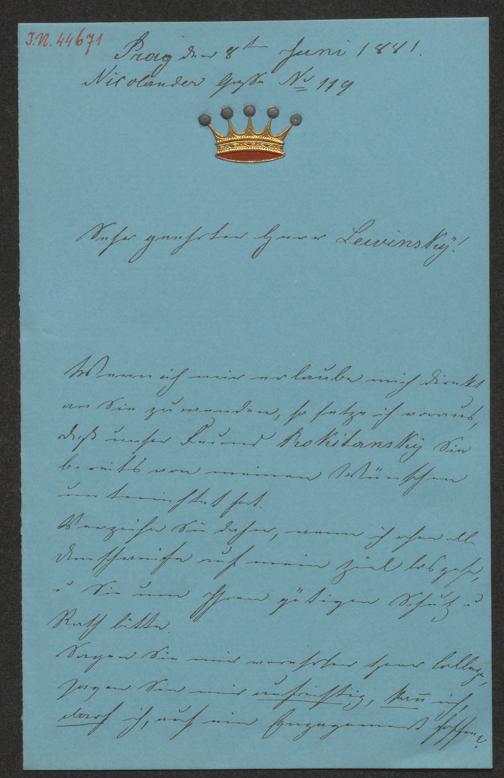 J.N. 44671
Prag den 8ten Juni 1881.
Nicolander Gasse No 119
Sehr geehrter Herr Lewinský!
Wenn ich mir erlaube mich direkt
an Sie zu wenden, so setze ich voraus,
daß unser Freund Rokitanský Sie
bereits von meinen Wünschen
unterrichtet hat.
Verzeihen Sie daher, wenn ich ohne alle
Umschweife auf mein Ziel losgehe,
u Sie um Ihren gütigen Schutz u
Rath bitte.
Sagen Sie mir verehrter Herr College,
sagen Sie mir aufrichtig, kann ich,
darf ich, auf ein Engagement hoffen?